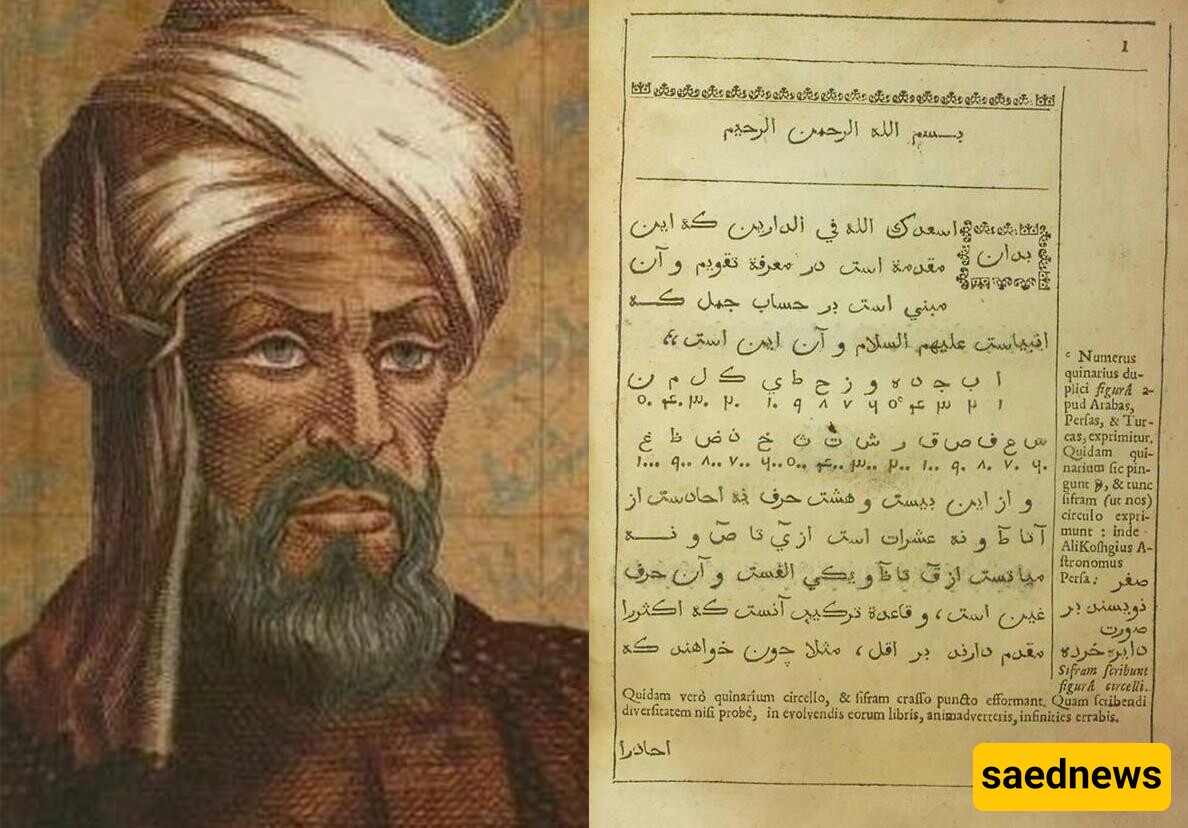 1
بسم الله الرحمن الرحيم
بدان اسعدك الله في الدارين كه اين
مقدمة است در معرفة تقويم و آن
مبني است بر حساب جمل كه
انبياست عليهم السلام و آن اين است
ا ب ج د ه و ز ح ط ي ك ل م ن
۱ ۲ ۳ ۴ ۵ᶜ ۶ ۷ ۸ ۹ ۱۰ ۲۰ ۳۰ ۴۰ ۵۰
س ع ف ص ق ر ش ت ث خ ذ ض ظ غ
۶۰ ۷۰ ۸۰ ۹۰ ۱۰۰ ۲۰۰ ۳۰۰ ۴۰۰ ۵۰۰ ۶۰۰ ۷۰۰ ۸۰۰ ۹۰۰ ۱۰۰۰
و از اين بيست و هشت حرف نه احادست از
آ تا ط و نه عشرات است از ي تا ص و نه
مياتست از ق تا ظ و يكي الفست و آن حرف
غين است، و قاعدة تركيب آنست كه اكثررا
مقدم دارند بر اقل، مثلا چون خواهند كه
ᶜ Numerus
quinarius du-
plici figurâ a-
pud Arabas,
Persas, & Tur-
cas, exprimitur.
Quidam qui-
narium sic pin-
gunt, & tunc
sifram (ut nos)
circulo expri-
munt : inde
AliKoshgius A-
stronomus
Persa: صفر
نويسند بر
صورت
دايره خرده
Sifram scribunt
figurâ circelli.
Quidam verò quinarium circello, & sifram crasso puncto efformant. Quam scribendi
diversitatem nisi probè, in evolvendis eorum libris, animadverteris, infinities errabis.
احادرا
saednews